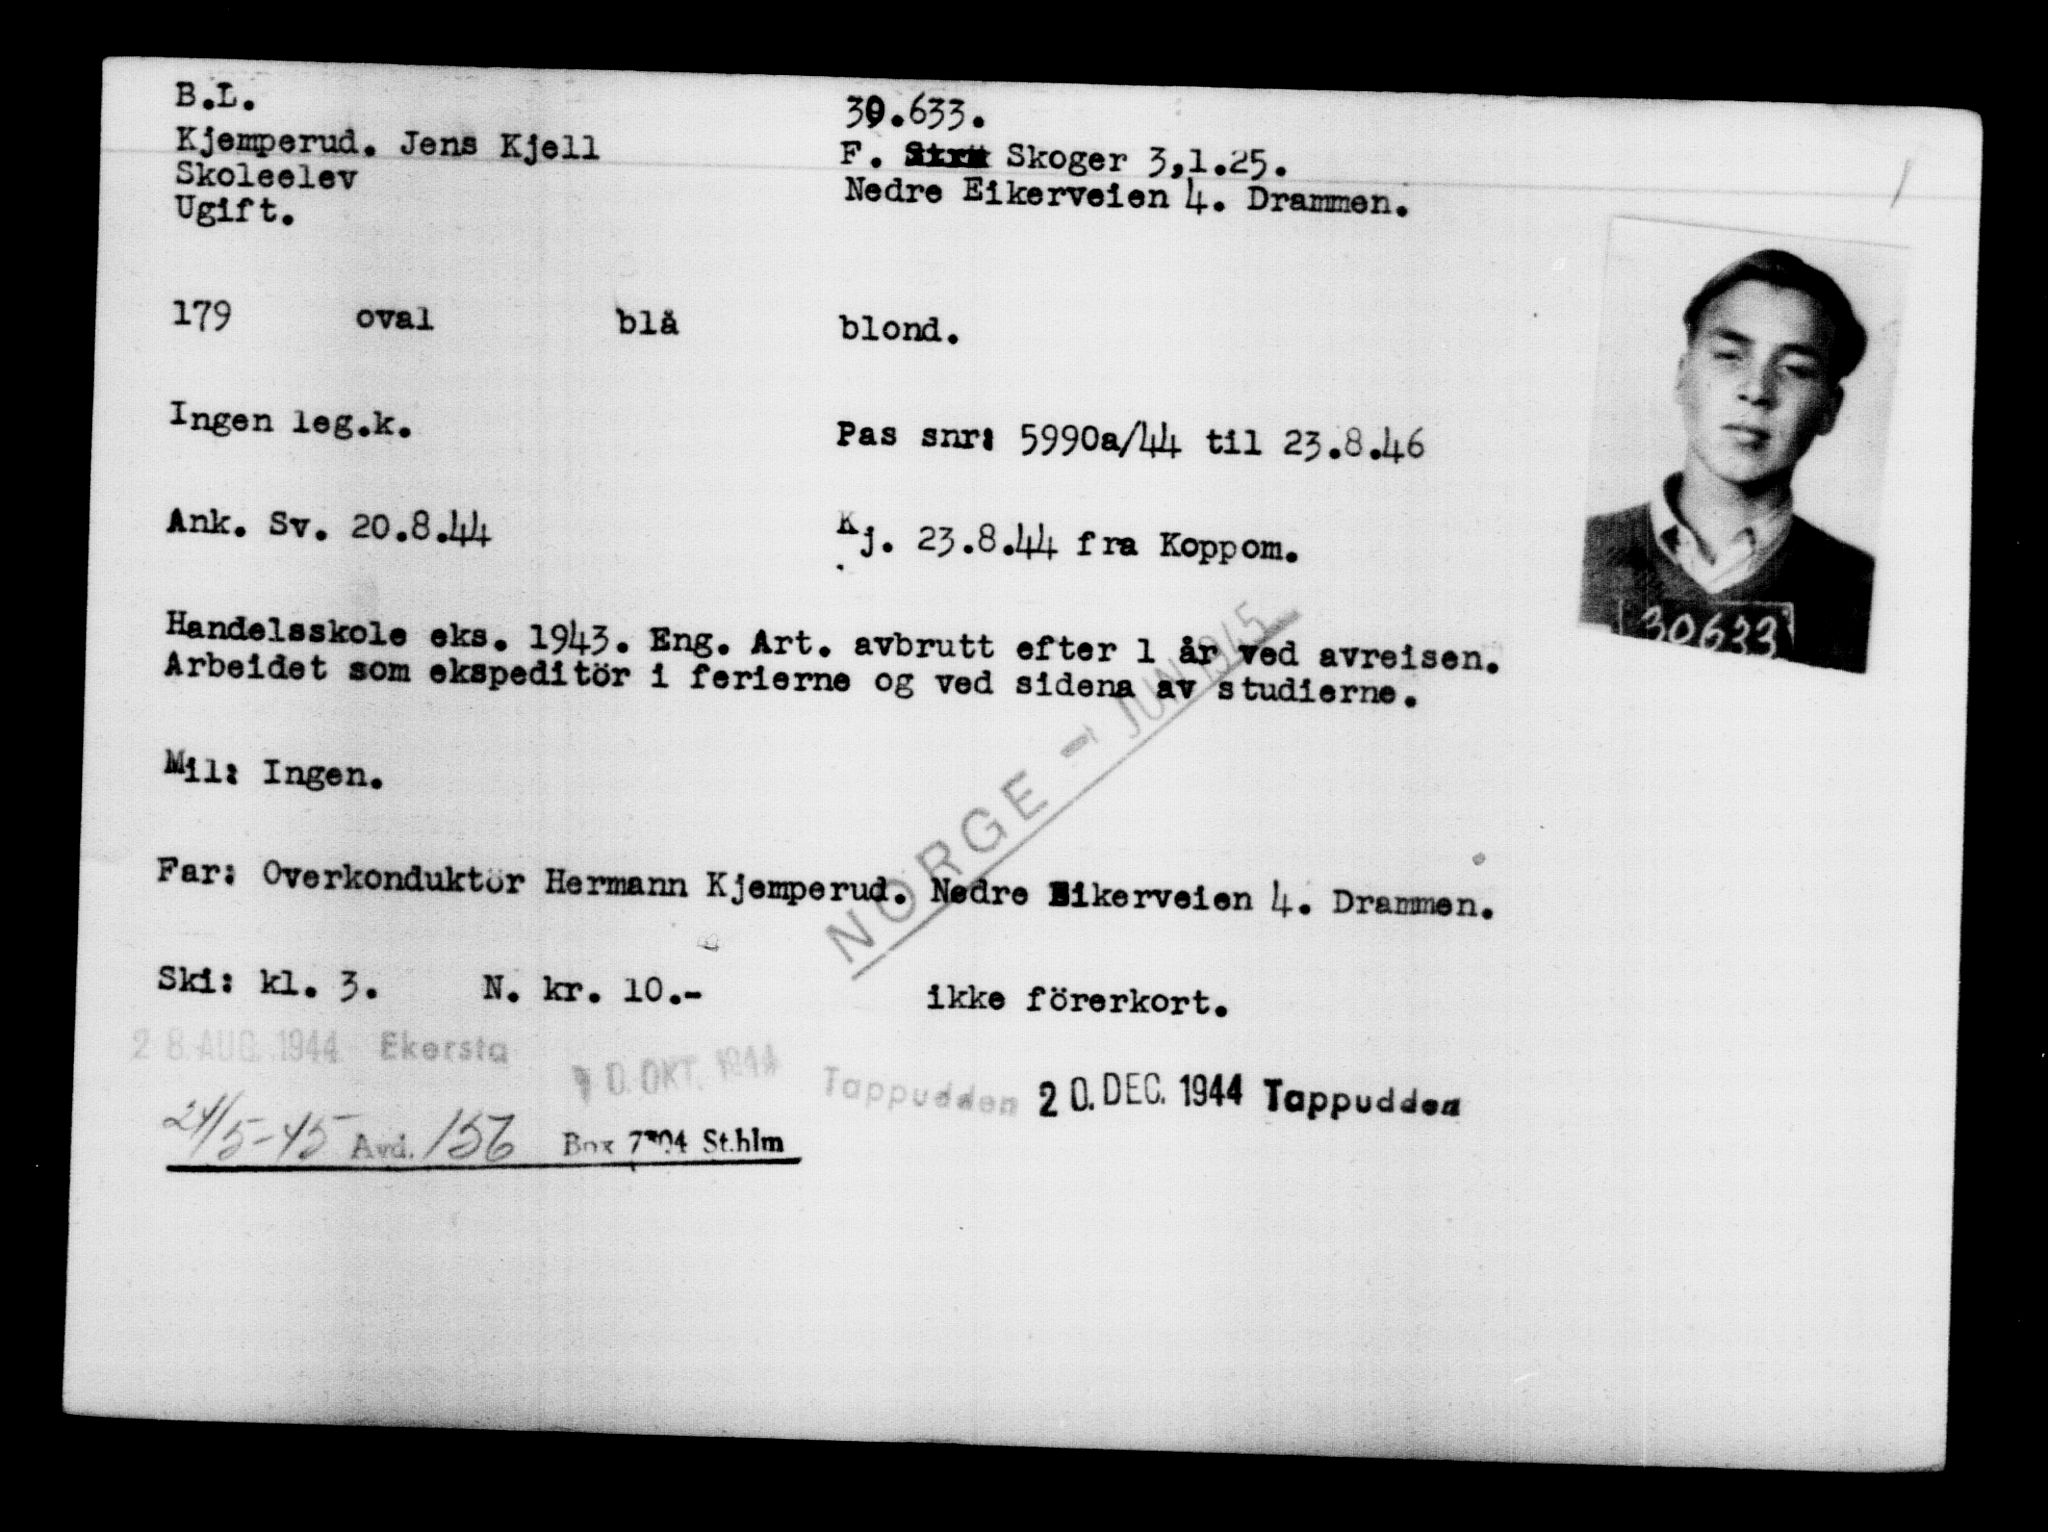 B.L.
30.633.
Kjemperud. Jens Kjell
F. Skoger 3,1.25.
Skoleelev
Nedre Eikerveien 4. Drammen.
Ugift.
179 oval blå blond.
Ingen leg.k.
Pas snr: 5990a/44 til 23.8.46
Ank. Sv. 20.8.44
Kj. 23.8.44 fra Koppom.
30633
Handelsskole eks. 1943. Eng. Art. avbrutt efter 1 år ved avreisen.
Arbeidet som ekspeditör i ferierne og ved sidena av studierne.
NORGE - JUN 1945
Mil: Ingen.
Far: Overkonduktör Hermann Kjemperud. Nedre Eikerveien 4. Drammen.
Ski: kl. 3. N. kr. 10.- ikke förerkort.
28. AUG. 1944 Ekersta
10. OKT. 1944 Tappudden
20. DEC. 1944 Tappudden
24/5-45 Avd. 156 Box St.hlm